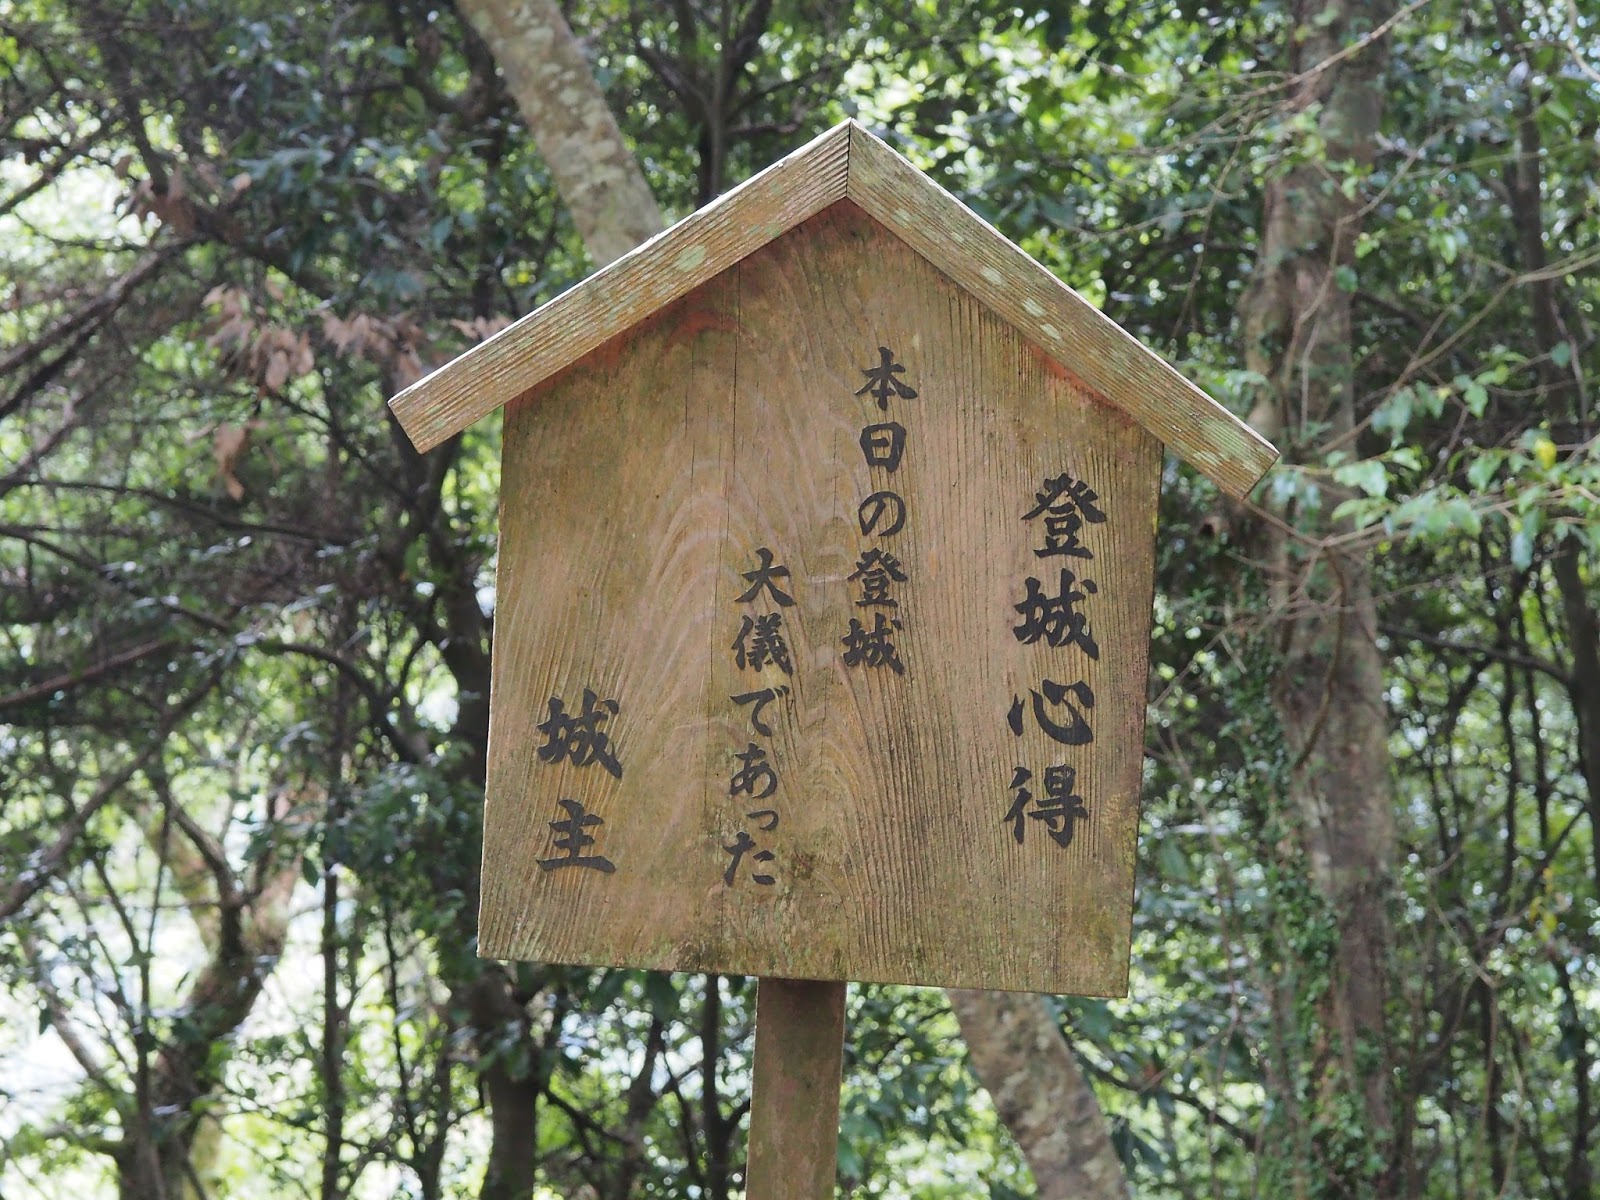 登城心得
本日の登城
大儀であった
城主